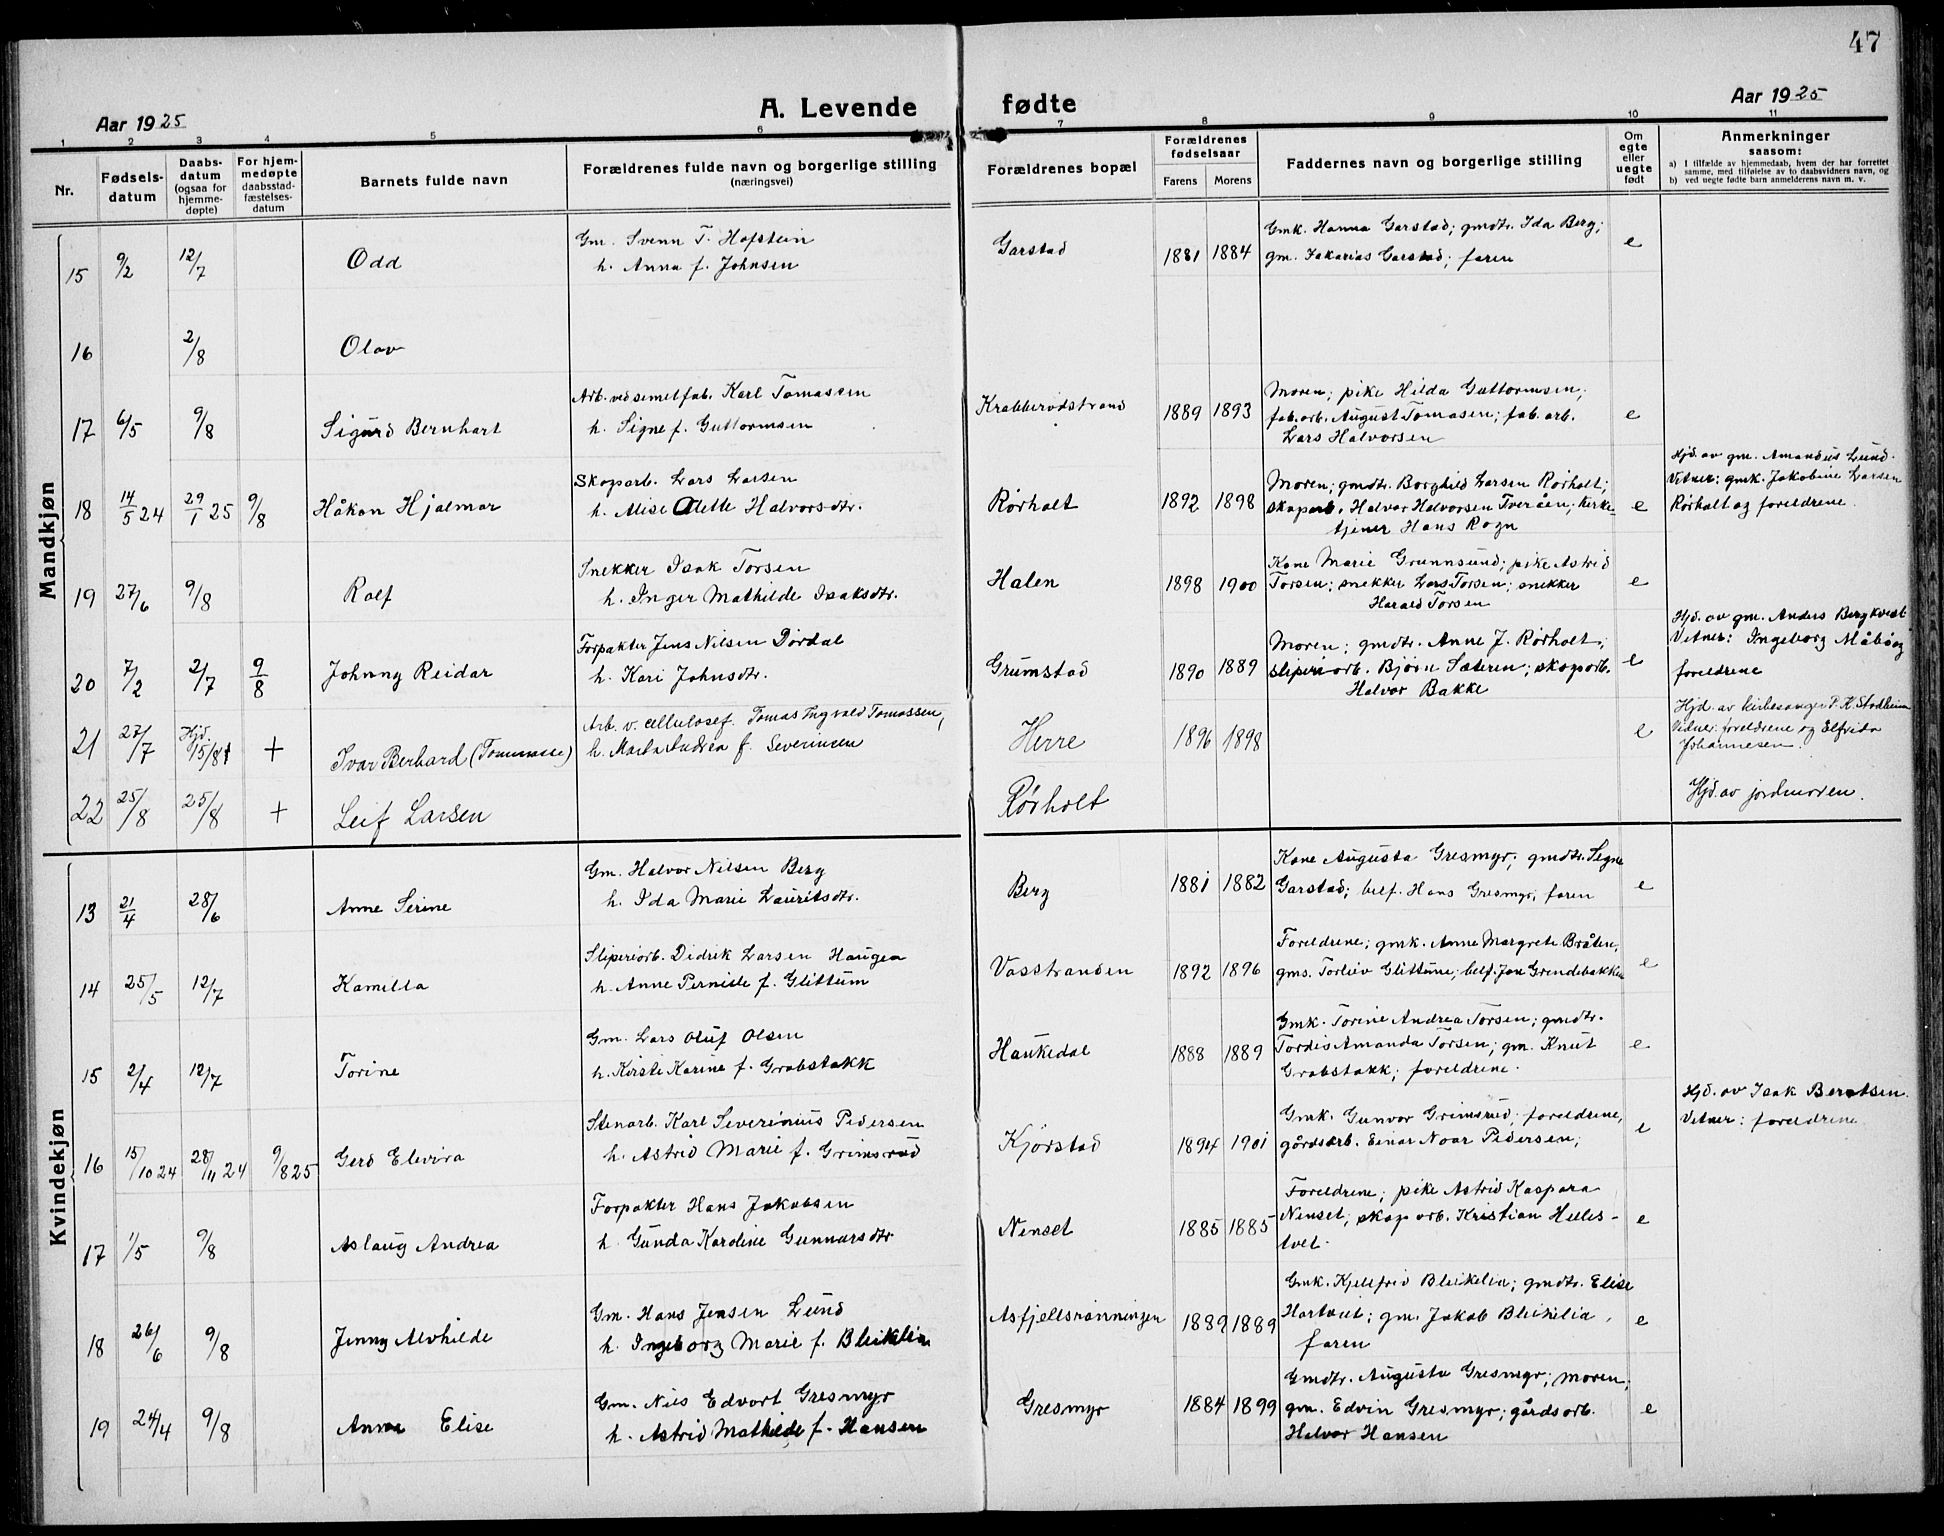 47
Aar 1925
A. Levende fødte
Aar 1925
1 2 3 4 5 6 7 8 9 10 11
Nr.
Fødsels-
datum
Daabs-
datum
(ogsaa for
hjemme-
døpte)
For hjem-
medøpte
daabsstad-
fæstelses-
datum
Barnets fulde navn
Forældrenes fulde navn og borgerlige stilling
(næringsvei)
Forældrenes bopæl
Forældrenes
fødselsaar
Farens Morens
Faddernes navn og borgerlige stilling
Om
egte
eller
uegte
født
Anmerkninger
saasom:
a) I tilfælde av hjemmedaab, hvem der har forrettet
samme, med tilføielse av to daabsvidners navn, og
b) ved uegte fødte barn anmelderens navn m. v.
Mandkjøn
15 9/2 12/7 Odd
Gm. Svenn T. Hafstein
h. Anna f. Johnsen
Garstad 1881 1884
Gmk. Hanna Garstad; gmdtr. Ida Berg;
gm. Sakarias Garstad; faren
e
16 2/8 Olav
17 6/5 9/8 Sigurd Bernhart
Arb. ved semetfab. Karl Tomassen
h. Signe f. Guttormsen
Krabberødstrand 1889 1893
Moren; pike Hilda Guttormsen;
fab.arb. August Tomasen; fab.arb.
Lars Halvorsen
e
18 14/5 24 29/1 25 9/8 Håkon Hjalmar
Skogarb. Lars Larsen
h. Alise Alette Halvorsdtr.
Rørholt 1892 1898
Moren; gmdtr. Borghild Larsen Rørholt;
skogarb. Halvor Halvorsen Tveråen; kirke-
tjener Hans Rogn
e
Hjd. av gm. Amandus Lund.
Vitner: gmk. Jakobine Larsen
Rørholt og foreldrene.
19 27/6 9/8 Rolf
Snekker Isak Torsen
h. Inger Mathilde Isaksdtr.
Halen 1898 1900
Kone Marie Grunnsund; pike Astrid
Torsen; snekker Lars Torsen; snekker
Harald Torsen
e
20 7/2 2/7 9/8 Johnny Reidar
Forpakter Jens Nilsen Dørdal
h. Kari Johnsdtr.
Grumstad 1890 1889
Moren; gmdtr. Anne J. Rørholt;
sliperiarb. Bjørn Sæteren; skogarb.
Halvor Bakke
e
Hjd. av gm. Anders Bergkvist
Vitner: Ingeborg Måbög
foreldrene
21 27/7 Hjd. 15/8 + Ivar Berhard (Tommasse)
Arb. v. cellulosef. Tomas Ingvald Tomassen,
h. Marta Andrea f. Severinsen
Herre 1896 1898
e
Hjd. av kirkesanger P. K. Stodheim
Vidner: foreldrene og Elfrida
Johannesen.
22 25/8 25/8 + Leif Larsen
Rørholt
Hjd. av jordmoren.
Kvindekjøn
13 21/4 28/6 Anne Serine
Gm. Halvor Nilsen Berg
h. Ida Marie Lauritsdtr.
Berg 1881 1882
Kone Augusta Gresmyr; gmdtr. Signe
Garstad; belf. Hans Gresmyr; faren
e
14 25/5 12/7 Kamilla
Sliperiarb. Didrik Larsen Haugen
h. Anne Pernille f. Glittum
Vasstranden 1892 1896
Foreldrene; gmk. Anne Margrete Bråten,
gms. Torleiv Glittum; belf. Jan Grendebakken
e
15 2/4 12/7 Torine
Gm. Lars Oluf Olsen
h. Kirsti Karine f. Grobstokk
Haukedal 1888 1889
Gmk. Torine Andrea Torsen; gmdtr.
Tordis Amanda Torsen; gm. Knut
Grobstokk; foreldrene.
e
16 15/10 24 28/11 24 9/8 25 Gerd Elevira
Stenarb. Karl Severinius Pedersen
h. Astrid Marie f. Grimsrud
Kjørstad 1894 1901
Gmk. Gunvor Grimsrud; foreldrene,
gårdsarb. Einar Noar Pedersen;
e
Hjd. av Isak Berntsen.
Vitner: foreldrene.
17 1/5 9/8 Aslaug Andrea
Forpakter Hans Jakobsen
h. Gunda Karoline Gunnarsdtr
Nenset 1885 1885
Foreldrene; pike Astrid Kaspara
Nenset; skogarb. Kristian Helles-
tvet.
e
18 26/6 9/8 Jenny Alvhilde
Gm. Hans Jensen Lund
h. Ingeborg Marie f. Bleiklia
Asfjellsrønningen 1889 1889
Gmk. Kjellfrid Bleiklia; gmdtr. Elise
Hartveit; gm. Jakob Bleiklia,
faren
e
19 24/4 9/8 Anna Elise
Gm. Nils Edvart Gresmyr
h. Astrid Mathilde f. Hansen
Gresmyr 1884 1899
Gmdtr. Augusta Gresmyr; moren;
gm. Edvin Gresmyr; gårdsarb.
Halvor Hansen
e